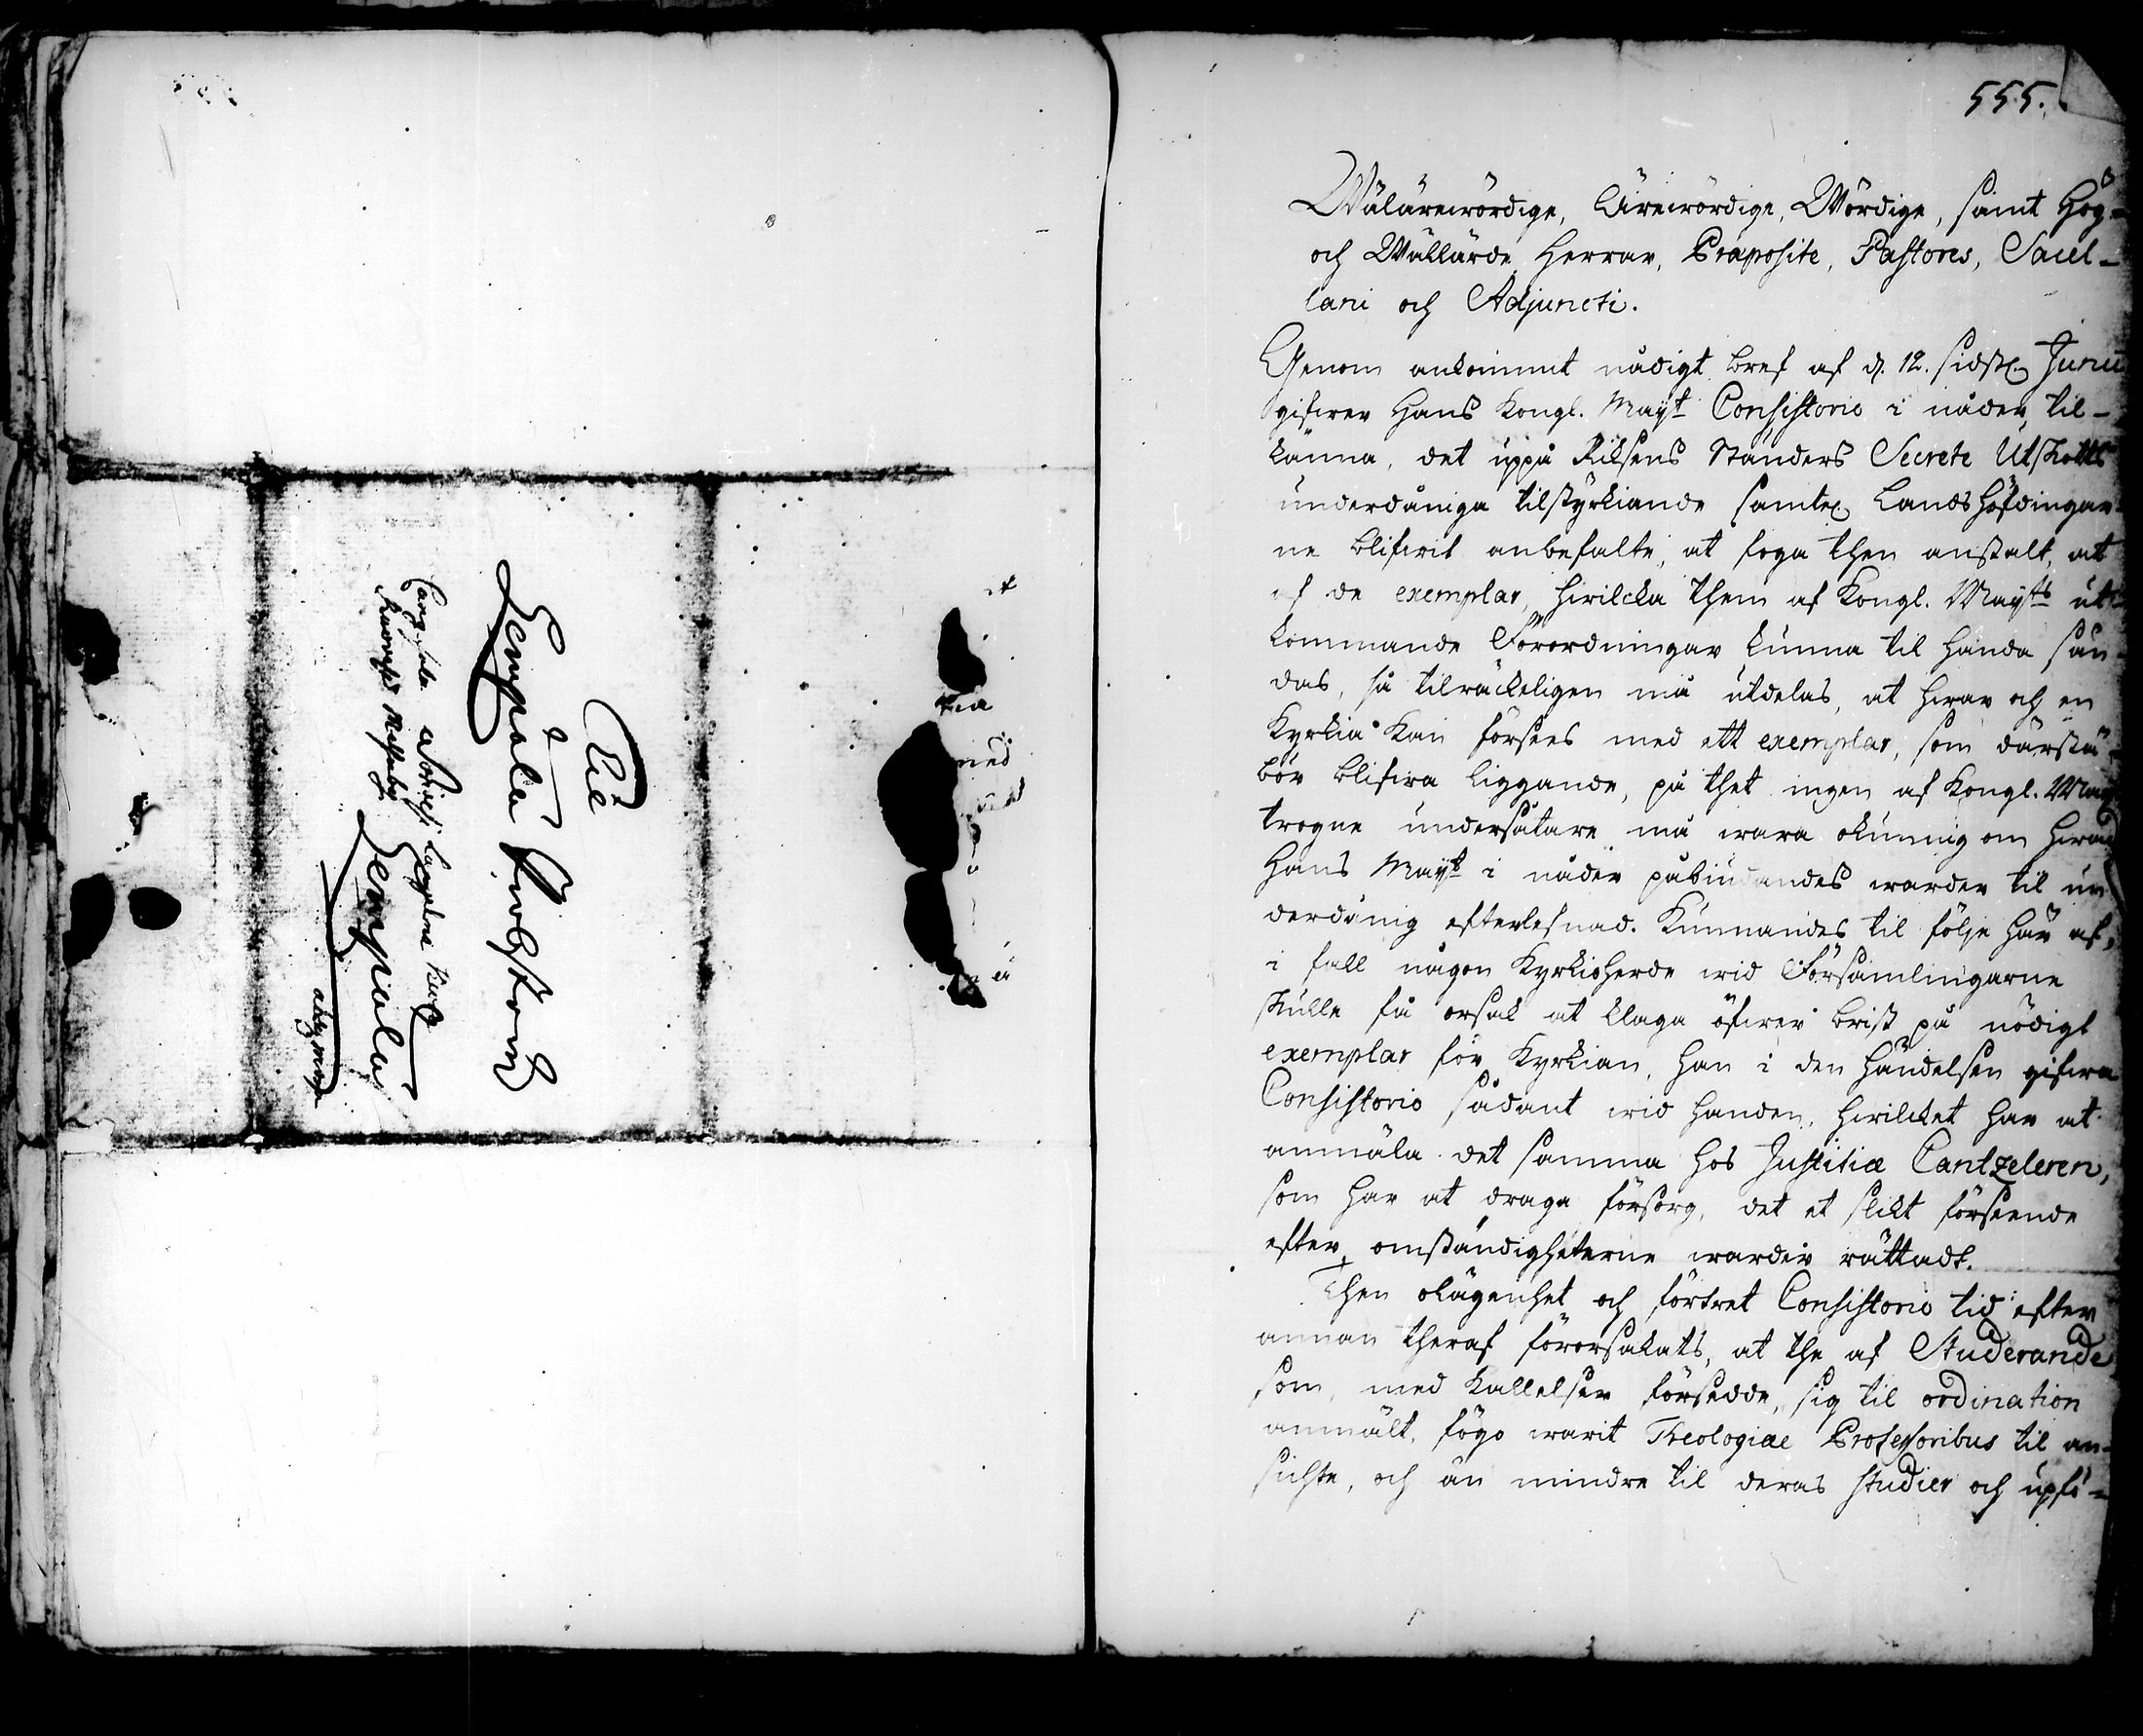 Til
Lempälä Probstoviet
Lempälä
555.
Wälärewördige, Ärewördige, Wördige, samt Hög-
och Wällärde Herrar, Præposite, Pastores, Sacel-
lani och Adjuncti.
Genom ankommit nådigt bref af d. 12. sidstl. Junii
gifwer Hans Kongl. Mayt Consistorio i nåder til-
känna, det uppå Riksens Ständers Secrete Utskotts
underdåniga tilstyrkiande samtel. Landshöfdingar-
ne blifwit anbefalte, at foga then anstalt, at
af de exemplar, hwilcka them af Kongl. Mayts ut-
kommande Förordningar kunna til handa sän-
das, så tilräckeligen må utdelas, at hwar och en
Kyrkia kan försees med ett exemplar, som därstä-
bör blifwa liggande, på thet ingen af Kongl. May
trogne undersåtare må wara okunnig om hwad
Hans Mayt i nåder påbiudandes warder til un-
derdånig efterlefnad. Kunnandes til följe här af,
i fall någon Kyrkioherde wid Församlingarne
skulle få orsak at klaga öfwer brist på nödigt
exemplar för Kyrkian, han i den händelsen gifwa
Consistorio sådant wid handen, hwilcket har at
anmäla det samma hos Justitiæ Cantzeleren,
som har at draga försorg, det et slikt förseende
efter omständigheterne warder rättadt.
Then olägenhet och förtret Consistorio tid efter
annan theraf förorsakats, at the af Studerande
som, med kallelser försedde, sig til ordination
anmält, föga warit Theologiae Professoribus til an-
sichte, och än mindre til deras studier och upfö-